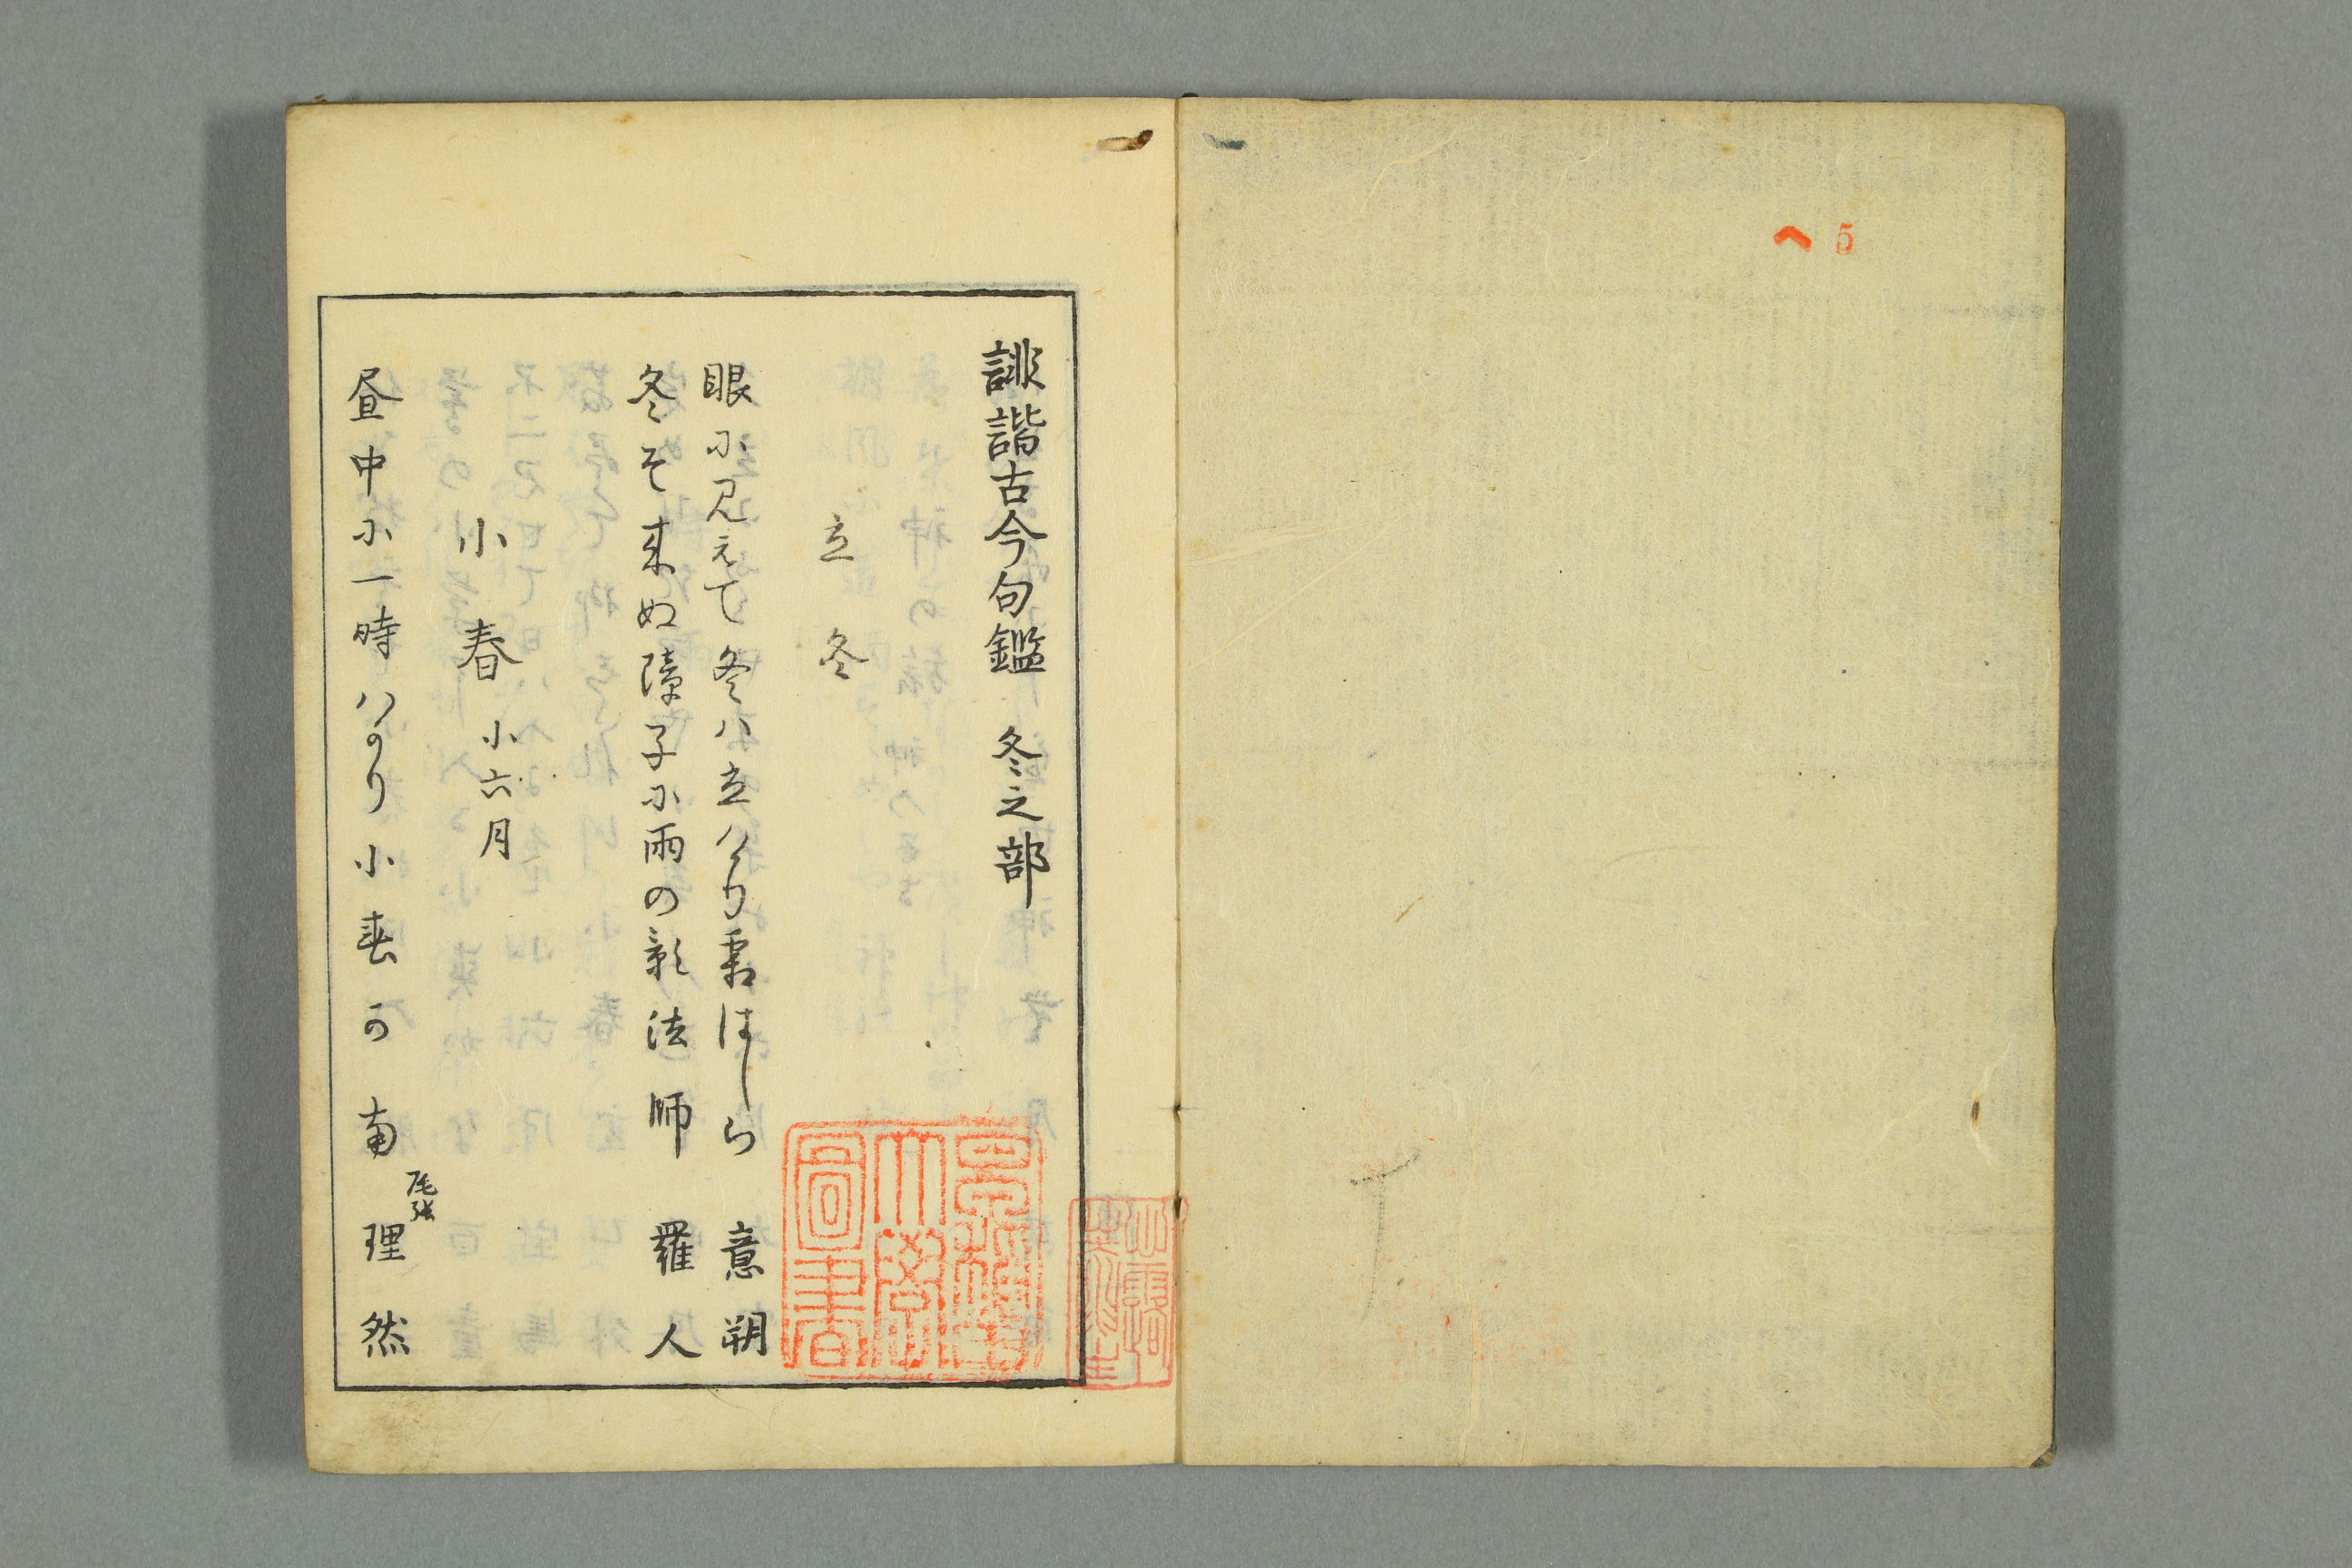 へ5
誹諧古今句鑑　冬之部
立冬
眼に見えて冬ハ立けり霜はしら　意朔
冬そ来ぬ障子に雨の影法師　羅人
小春　小六月
昼中に一時ハかり小春かな　尾張　理然